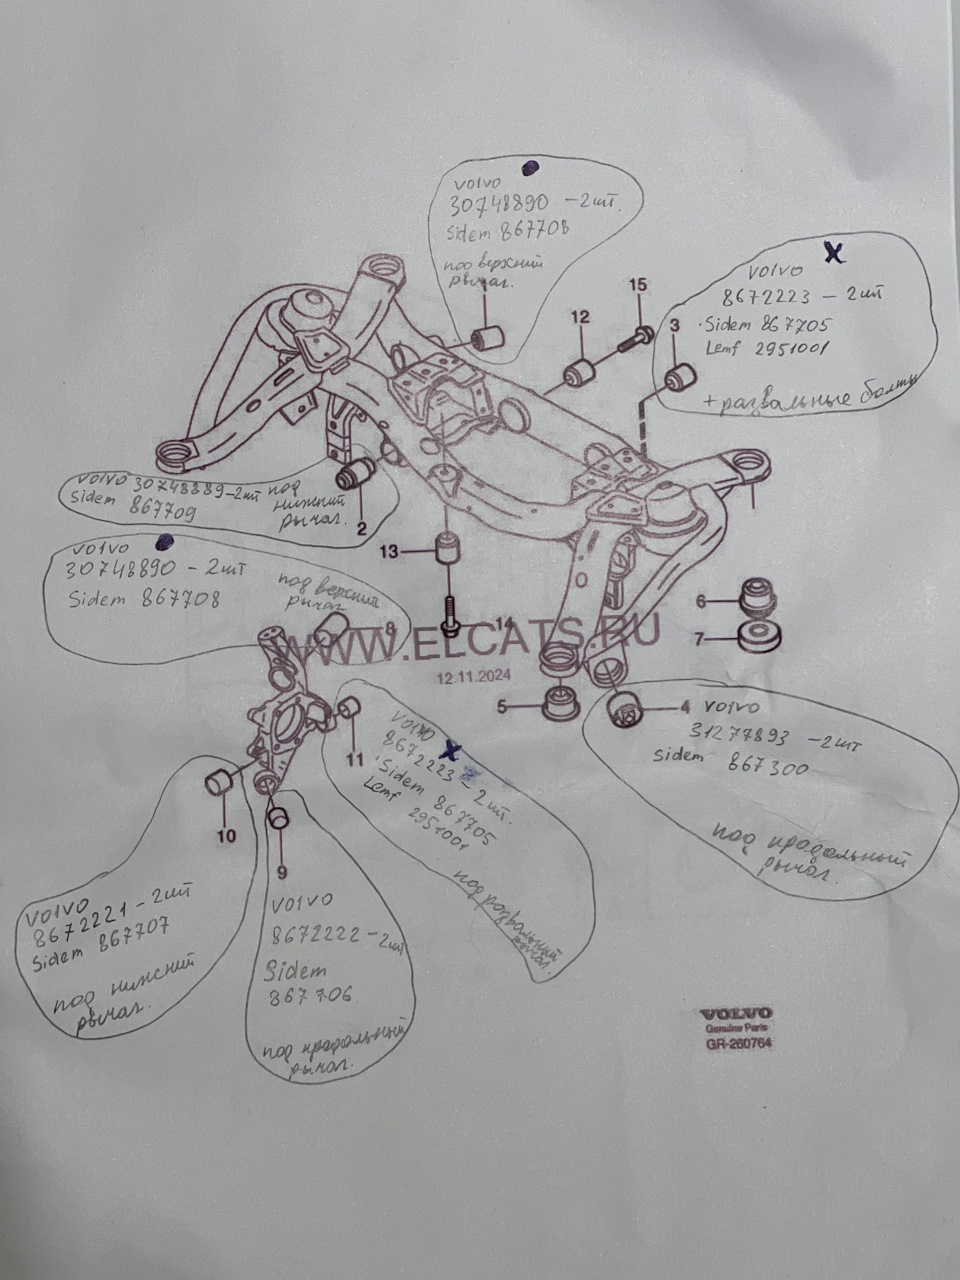 volvo
30748890 - 2шт.
Sidem 867708
под верхний
рычаг.
1
X
volvo
8672223 - 2шт
Sidem 867705
Lemf 2951001
+ развальные болты
15
12
3
volvo 30748889-2шт под
Sidem 867709
нижний
рычаг.
2
volvo
30748890 - 2шт
Sidem 867708
под верхний
рычаг
8
13
14
6
7
5
4
WWW.ELCATS.RU
12.11.2024
volvo
31277893 - 2шт
Sidem 867300
под продольный
рычаг.
11
10
9
volvo
X
8672223 - 2шт.
Sidem 867705
Lemf
2951001
под развальный
рычаг.
volvo
8672221 - 2шт
Sidem 867707
под нижний
рычаг.
volvo
8672222 - 2шт
Sidem
867706
под продольный
рычаг.
VOLVO
Genuine Parts
GR-260764